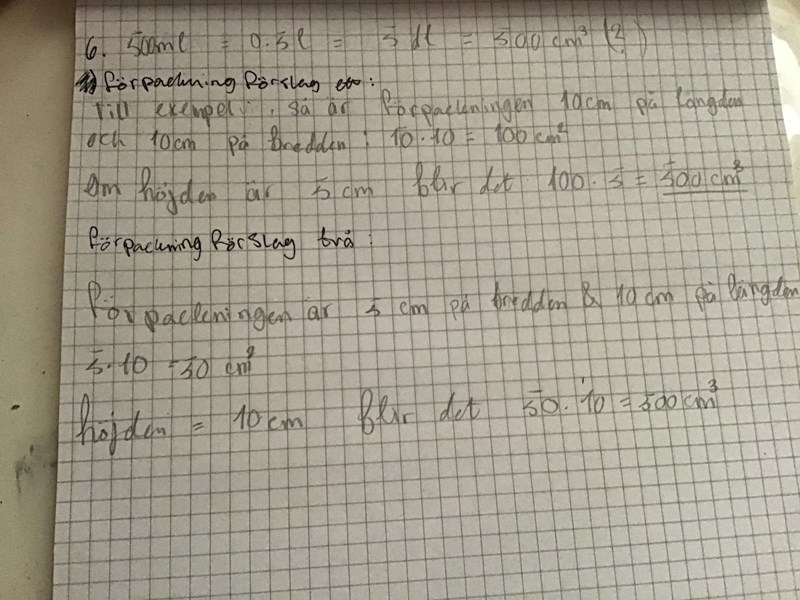 6. 500ml = 0.5l = 5 dl = 500 cm³ (?)
förpackning förslag ett:
Till exempel: så är förpackningen 10cm på längden
och 10cm på bredden: 10·10 = 100 cm²
Om höjden är 5 cm blir det 100 · 5 = 500 cm³
förpackning förslag två:
förpackningen är 5 cm på bredden & 10 cm på längden
5·10 = 50 cm²
höjden = 10cm blir det 50 · 10 = 500 cm³